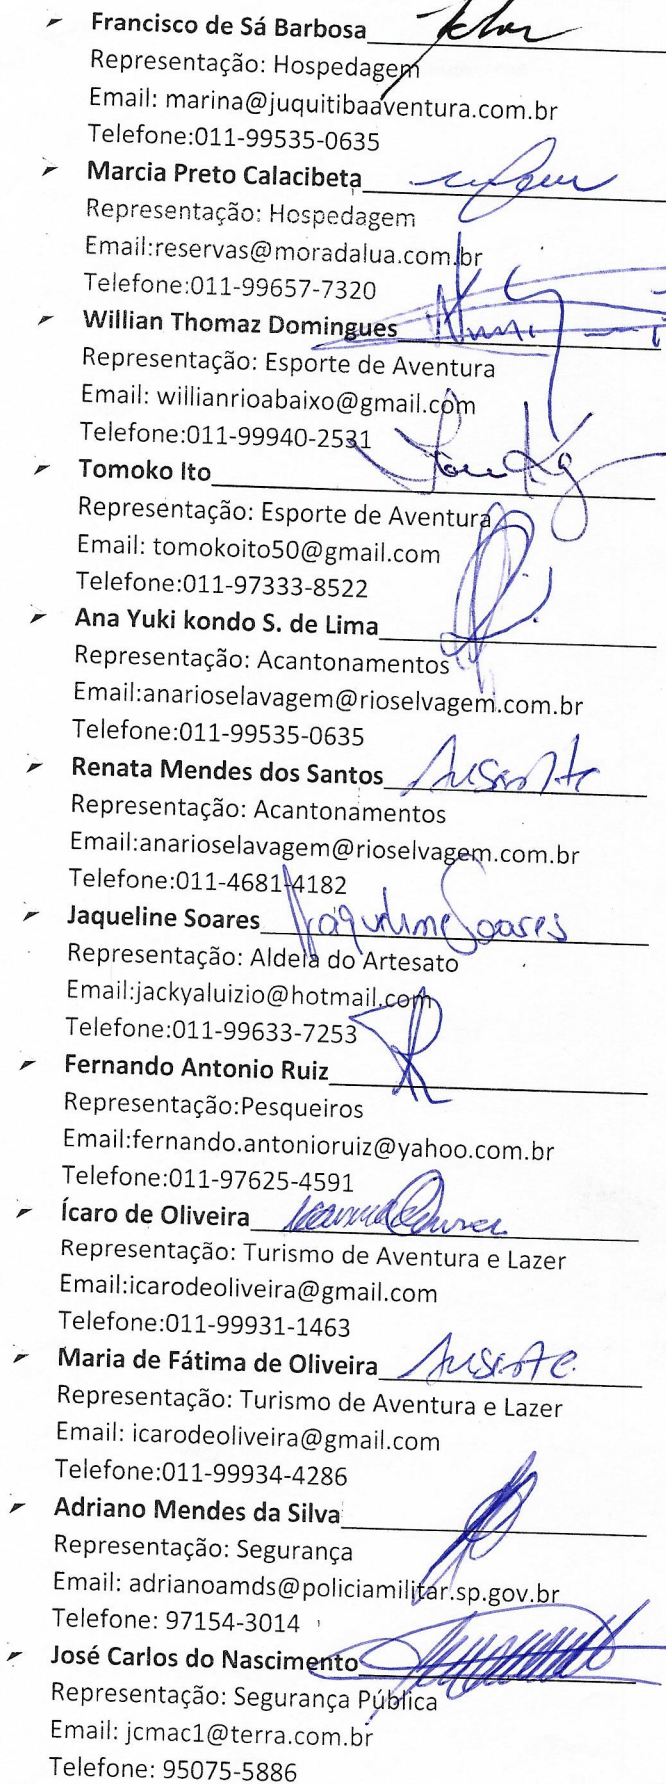 Francisco de Sá Barbosa
Representação: Hospedagem
Email: marina@juquitibaaventura.com.br
Telefone:011-99535-0635
Marcia Preto Calacibeta
Representação: Hospedagem
Email:reservas@moradalua.com.br
Telefone:011-99657-7320
Willian Thomaz Domingues
Representação: Esporte de Aventura
Email: willianrioabaixo@gmail.com
Telefone:011-99940-2531
Tomoko Ito
Representação: Esporte de Aventura
Email: tomokoito50@gmail.com
Telefone:011-97333-8522
Ana Yuki kondo S. de Lima
Representação: Acantonamentos
Email:anarioselavagem@rioselvagem.com.br
Telefone:011-99535-0635
Renata Mendes dos Santos Ausente
Representação: Acantonamentos
Email:anarioselavagem@rioselvagem.com.br
Telefone:011-4681-4182
Jaqueline Soares Jaqueline Soares
Representação: Aldeia do Artesato
Email:jackyaluizio@hotmail.com
Telefone:011-99633-7253
Fernando Antonio Ruiz
Representação:Pesqueiros
Email:fernando.antonioruiz@yahoo.com.br
Telefone:011-97625-4591
Ícaro de Oliveira
Representação: Turismo de Aventura e Lazer
Email:icarodeoliveira@gmail.com
Telefone:011-99931-1463
Maria de Fátima de Oliveira Ausente
Representação: Turismo de Aventura e Lazer
Email: icarodeoliveira@gmail.com
Telefone:011-99934-4286
Adriano Mendes da Silva
Representação: Segurança
Email: adrianoamds@policiamilitar.sp.gov.br
Telefone: 97154-3014
José Carlos do Nascimento
Representação: Segurança Pública
Email: jcmac1@terra.com.br
Telefone: 95075-5886